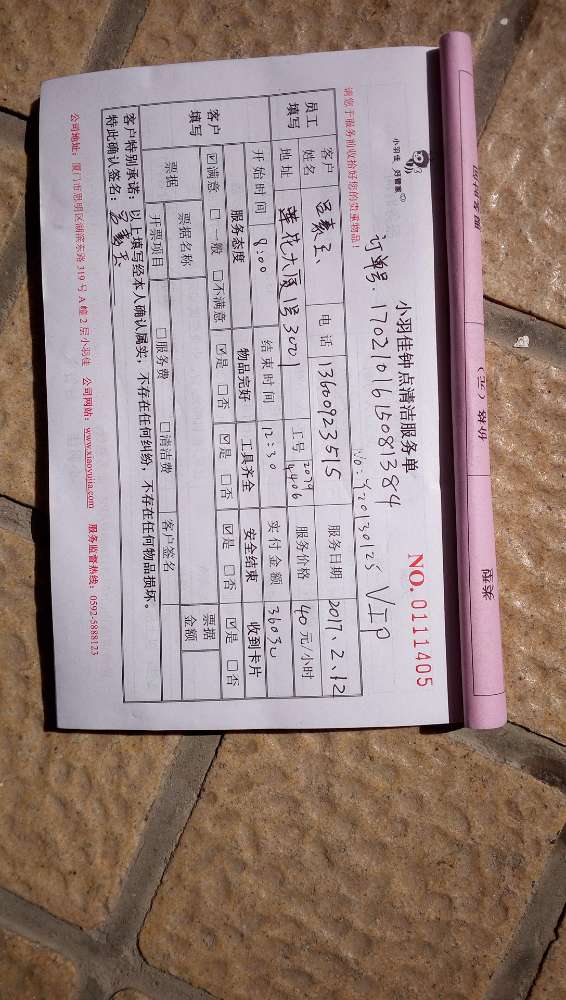 小羽佳 好管家
小羽佳钟点清洁服务单
NO. 0111405
订单号:1702101615081384
No:Y20130125 VIP
请您于服务前收拾好您的贵重物品!
员工填写 客户姓名 吕素玉 电话 13600923515 服务日期 2017.2.12
地址 莲花大厦1号3001 工号 2079 4406 服务价格 40元/小时
客户填写 开始时间 8:00 结束时间 12:30 实付金额 360元
服务态度 物品完好 工具齐全 安全结束 收到卡片
☑满意 □一般 □不满意 ☑是 □否 ☑是 □否 ☑是 □否 ☑是 □否
票据 票据名称 票据金额
开票项目 □服务费 □清洁费 客户签名
客户特别承诺:以上填写经本人确认属实,不存在任何纠纷,不存在任何物品损坏。
特此确认签名:吕素玉
公司地址:厦门市思明区湖滨东路319号A幢2层小羽佳 公司网站:www.xiaoyujia.com 服务监督热线:0592-5888123